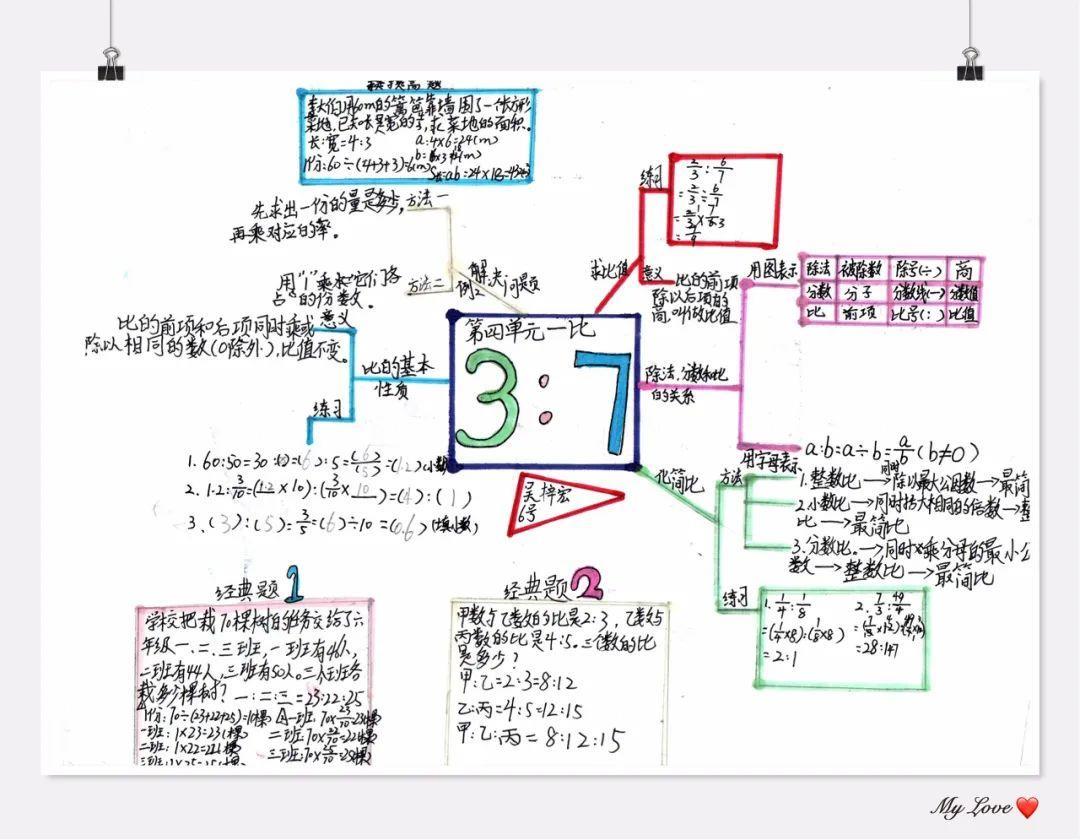 李大伯用60m的篱笆靠墙围了一个长方形
菜地,已知长是宽的,求菜地的面积。
长:宽=4:3
a:4×6=24(m)
1份:60÷(4+3+3)=6(m)
方法一
先求出一份的量是多少,
再乘对应的率。
解决问题
例2
方法二
用"1"乘求它们各
占的份数。
意义
比的前项和后项同时乘或
除以相同的数(0除外),比值不变。
比的基本
性质
练习
1. 60:50=30:
2. 1.2:3/10=(1.2×10):(3/10×10)=(4):(1)
3. (3):(5)=3/5=(6)÷10=(0.6)(填小数)
第四单元一比
3:7
吴梓宏
6号
求比值
练习
2/3:6/7
=2/3÷6/7
意义
比的前项
除以后项的
商,叫做比值
除法、分数和比
的关系
用图表示
除法 被除数 除号(÷) 商
分数 分子 分数线(—) 分数值
比 前项 比号(:) 比值
用字母表示
a:b=a÷b=a/b(b≠0)
化简比
方法
1.整数比→除以最大公因数→最简
2.小数比→同时扩大相同的倍数→整
比→最简比
3.分数比。→同时乘分母的最小公
数→整数比→最简比
练习
1. 1/4:1/8
=2:1
2. 7/3:49/4
=28:147
经典题1
学校把栽70棵树的任务交给了六
年级一、二、三班,一班有46人,
二班有44人,三班有50人。三个班各
栽多少棵树?
一:二:三=23:22:25
1份:70÷(23+22+25)=1(棵)
一班:1×23=23(棵)
二班:1×22=22(棵)
一班:70×23/70=23(棵)
二班:70×22/70=22(棵)
三班:70×25/70=25(棵)
经典题2
甲数与乙数的比是2:3,乙数与
丙数的比是4:5。三个数的比
是多少?
甲:乙=2:3=8:12
乙:丙=4:5=12:15
甲:乙:丙=8:12:15
My Love